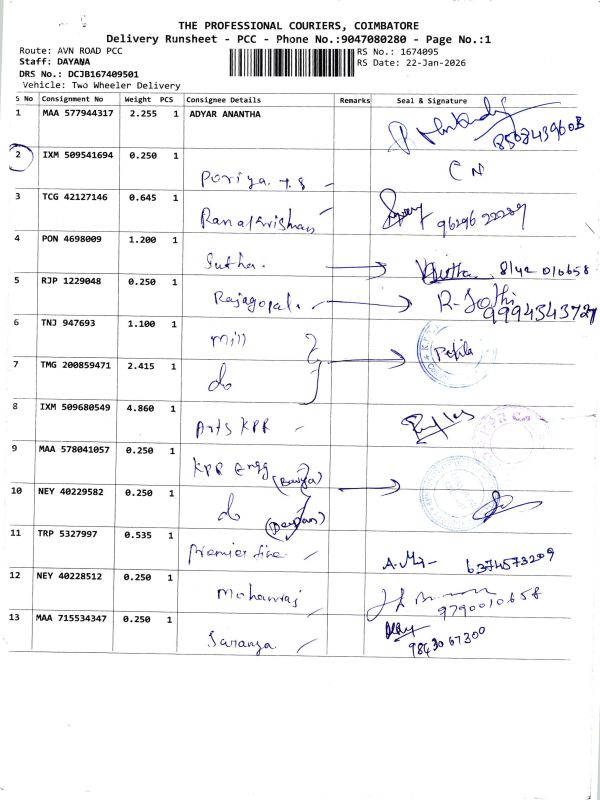 THE PROFESSIONAL COURIERS, COIMBATORE
Delivery Runsheet - PCC - Phone No.:9047080280 - Page No.:1
Route: AVN ROAD PCC
Staff: DAYANA
DRS No.: DCJB167409501
Vehicle: Two Wheeler Delivery
RS No.: 1674095
RS Date: 22-Jan-2026
S No Consignment No Weight PCS Consignee Details Remarks Seal & Signature
1 MAA 577944317 2.255 1 ADYAR ANANTHA
2 IXM 509541694 0.250 1 CN
3 TCG 42127146 0.645 1 9629622289
4 PON 4698009 1.200 1 Sutha.
5 RJP 1229048 0.250 1 Rajagopal.
6 TNJ 947693 1.100 1 Mill
7 TMG 200859471 2.415 1 do
8 IXM 509680549 4.860 1 Arts KPR
9 MAA 578041057 0.250 1 KPR Engg
10 NEY 40229582 0.250 1 do
11 TRP 5327997 0.535 1 Premier fine 6374573209
12 NEY 40228512 0.250 1 Mohanraj 9790010658
13 MAA 715534347 0.250 1 Saranya 9843067300